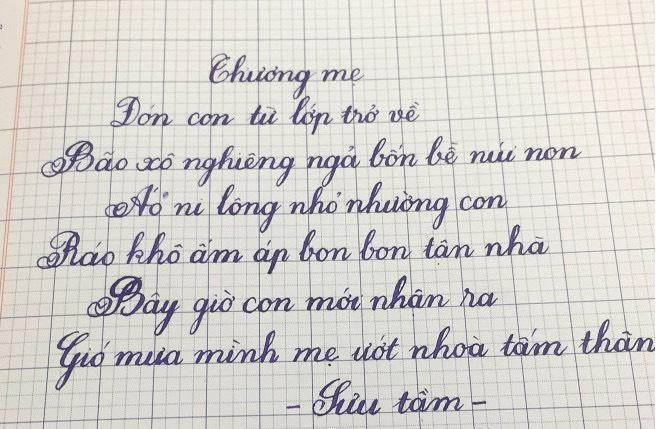 Thương mẹ
Đón con từ lớp trở về
Bão xô nghiêng ngả bốn bề núi non
Áo ni lông nhỏ nhường con
Ráo khô ấm áp bon bon tận nhà
Bây giờ con mới nhận ra
Gió mưa mình mẹ ướt nhoà tấm thân
- Sưu tầm -